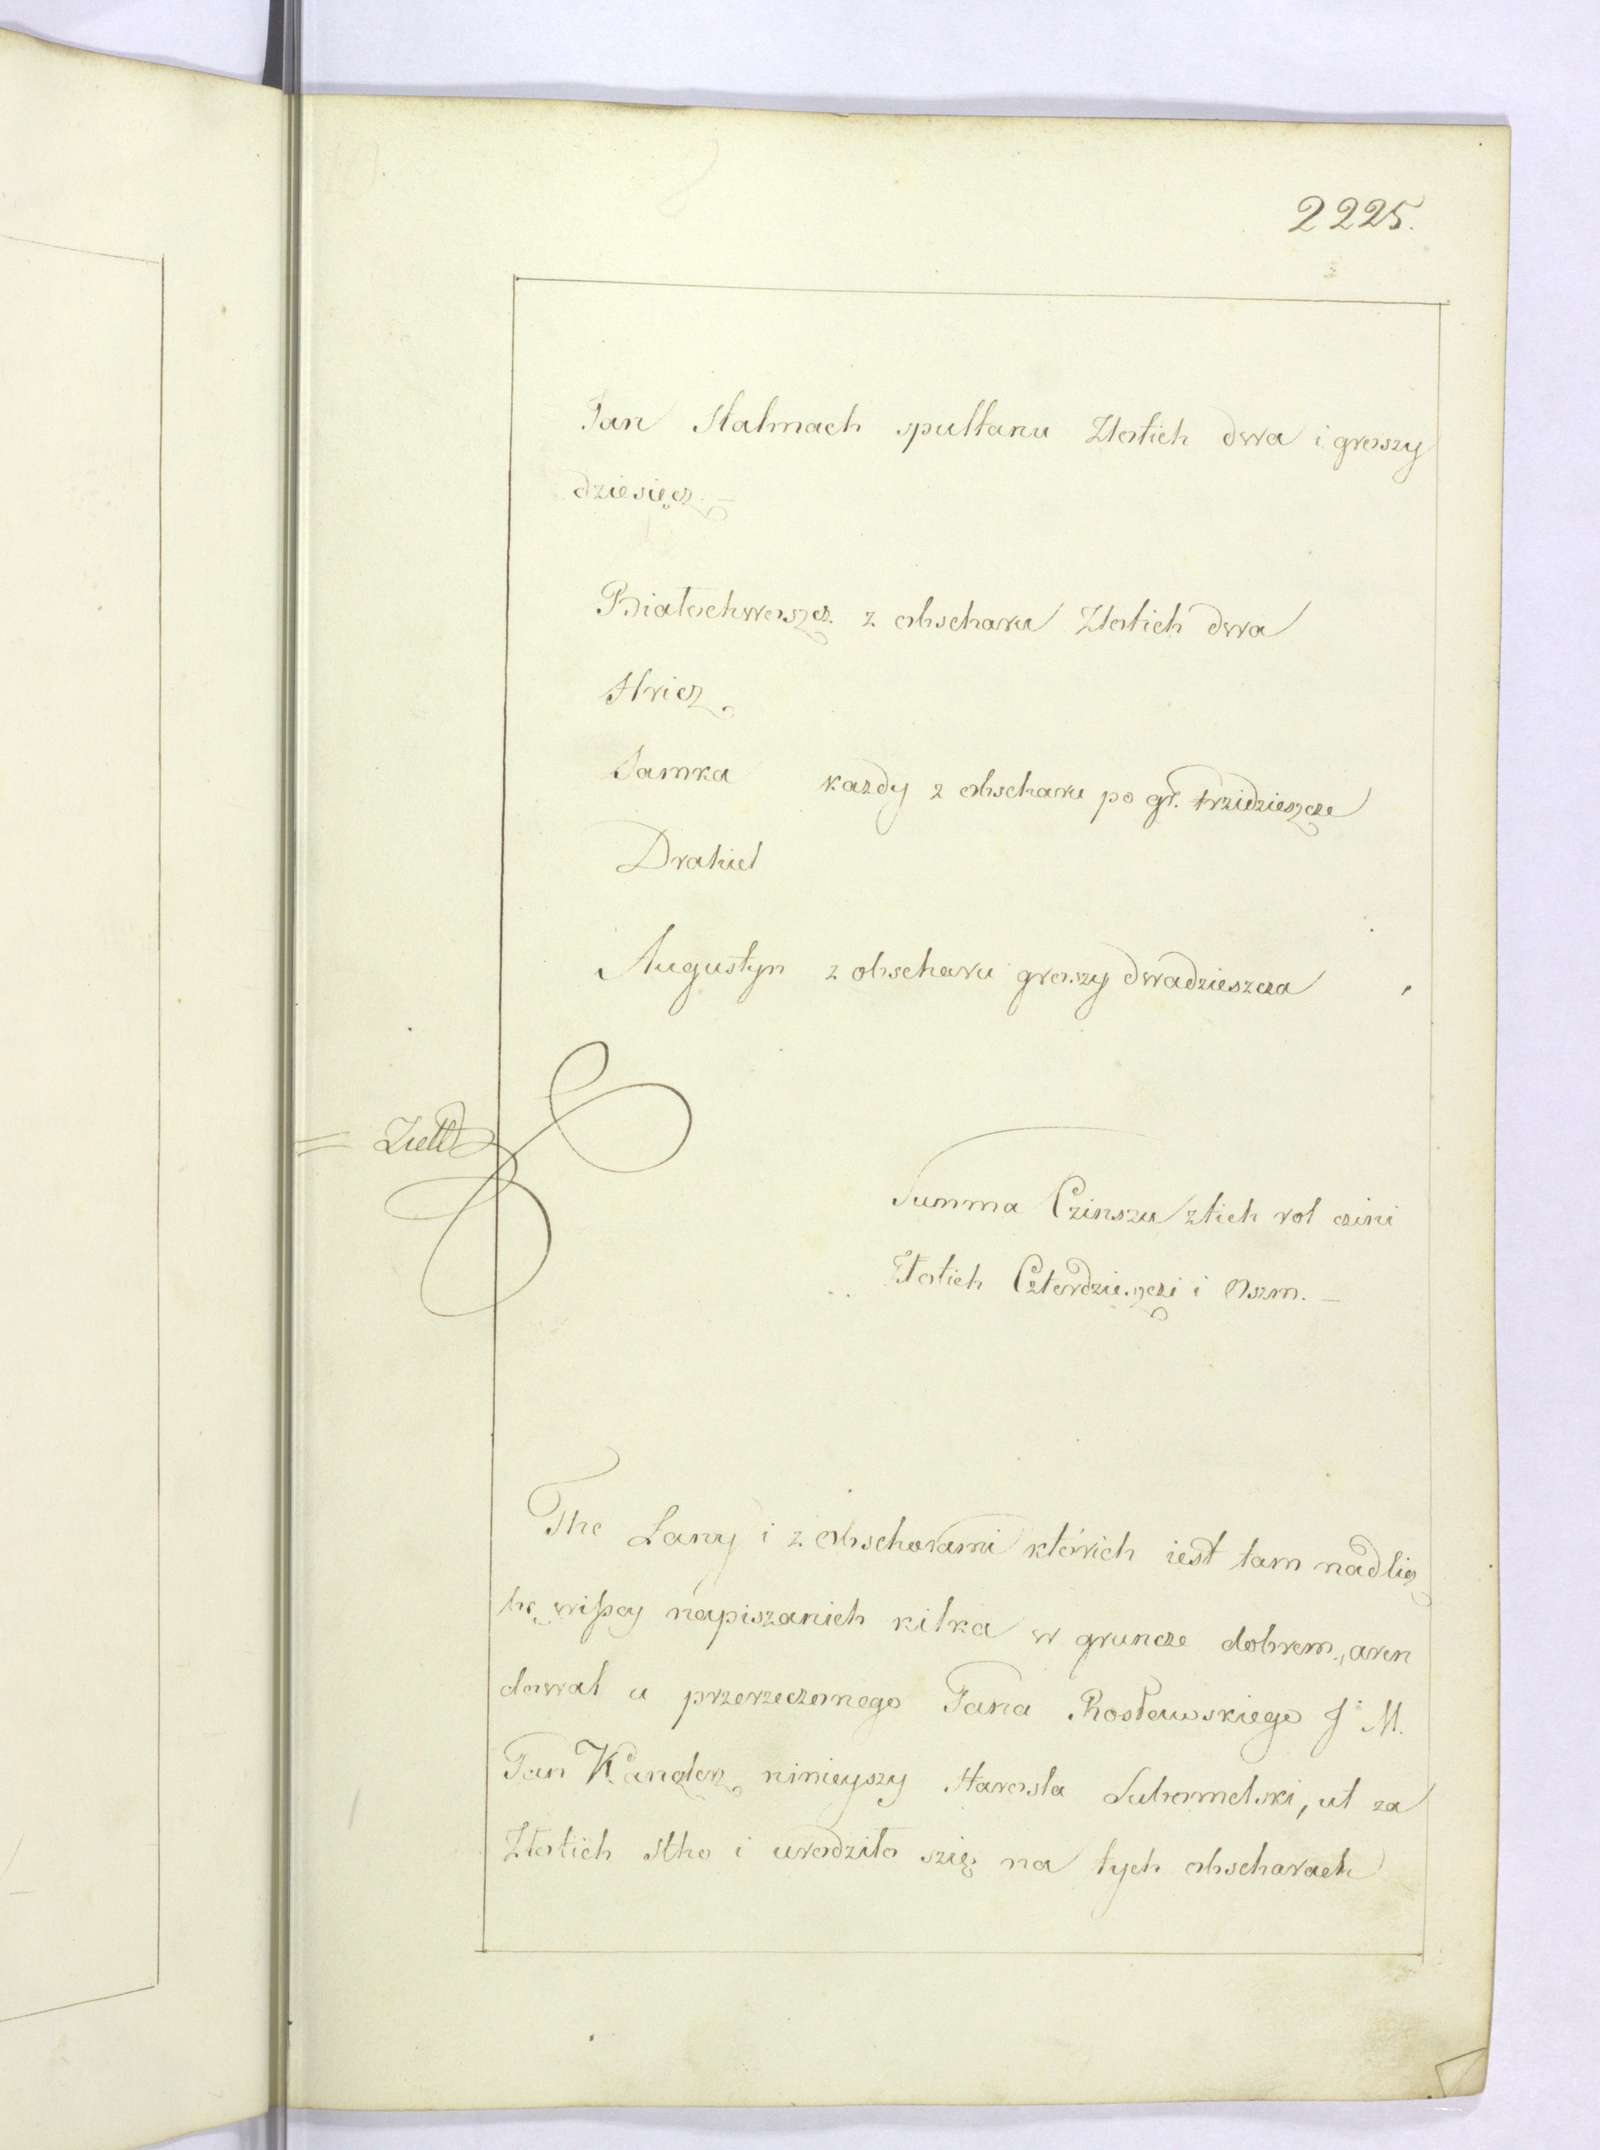 2225.
Jan Stalmach spulłanu Zlotich dwa i groszy
dziesięcz. —
Białochwoszcz z obscharu Zlotich dwa
Hricz
Samka każdy z obscharu po gr. trzidzieszcze
Drahiel
Augustyn z obscharu groszy dwadzieszcza
Summa Czinszu ztich rol czini
Złotich Czterdzieszczi i Oszm. —
The Lany i z obschorami którich iest tam nadlicz
bę wiſzey napiszanich kilka w gruncze dobrem, aren
dował u przerzeczonego Pana Rosłowskiego J. M.
Pan Kanclerz ninieyszy Starosta Lubomelski, ut za
Złotich Stho i urodziło szię na tych obscharach